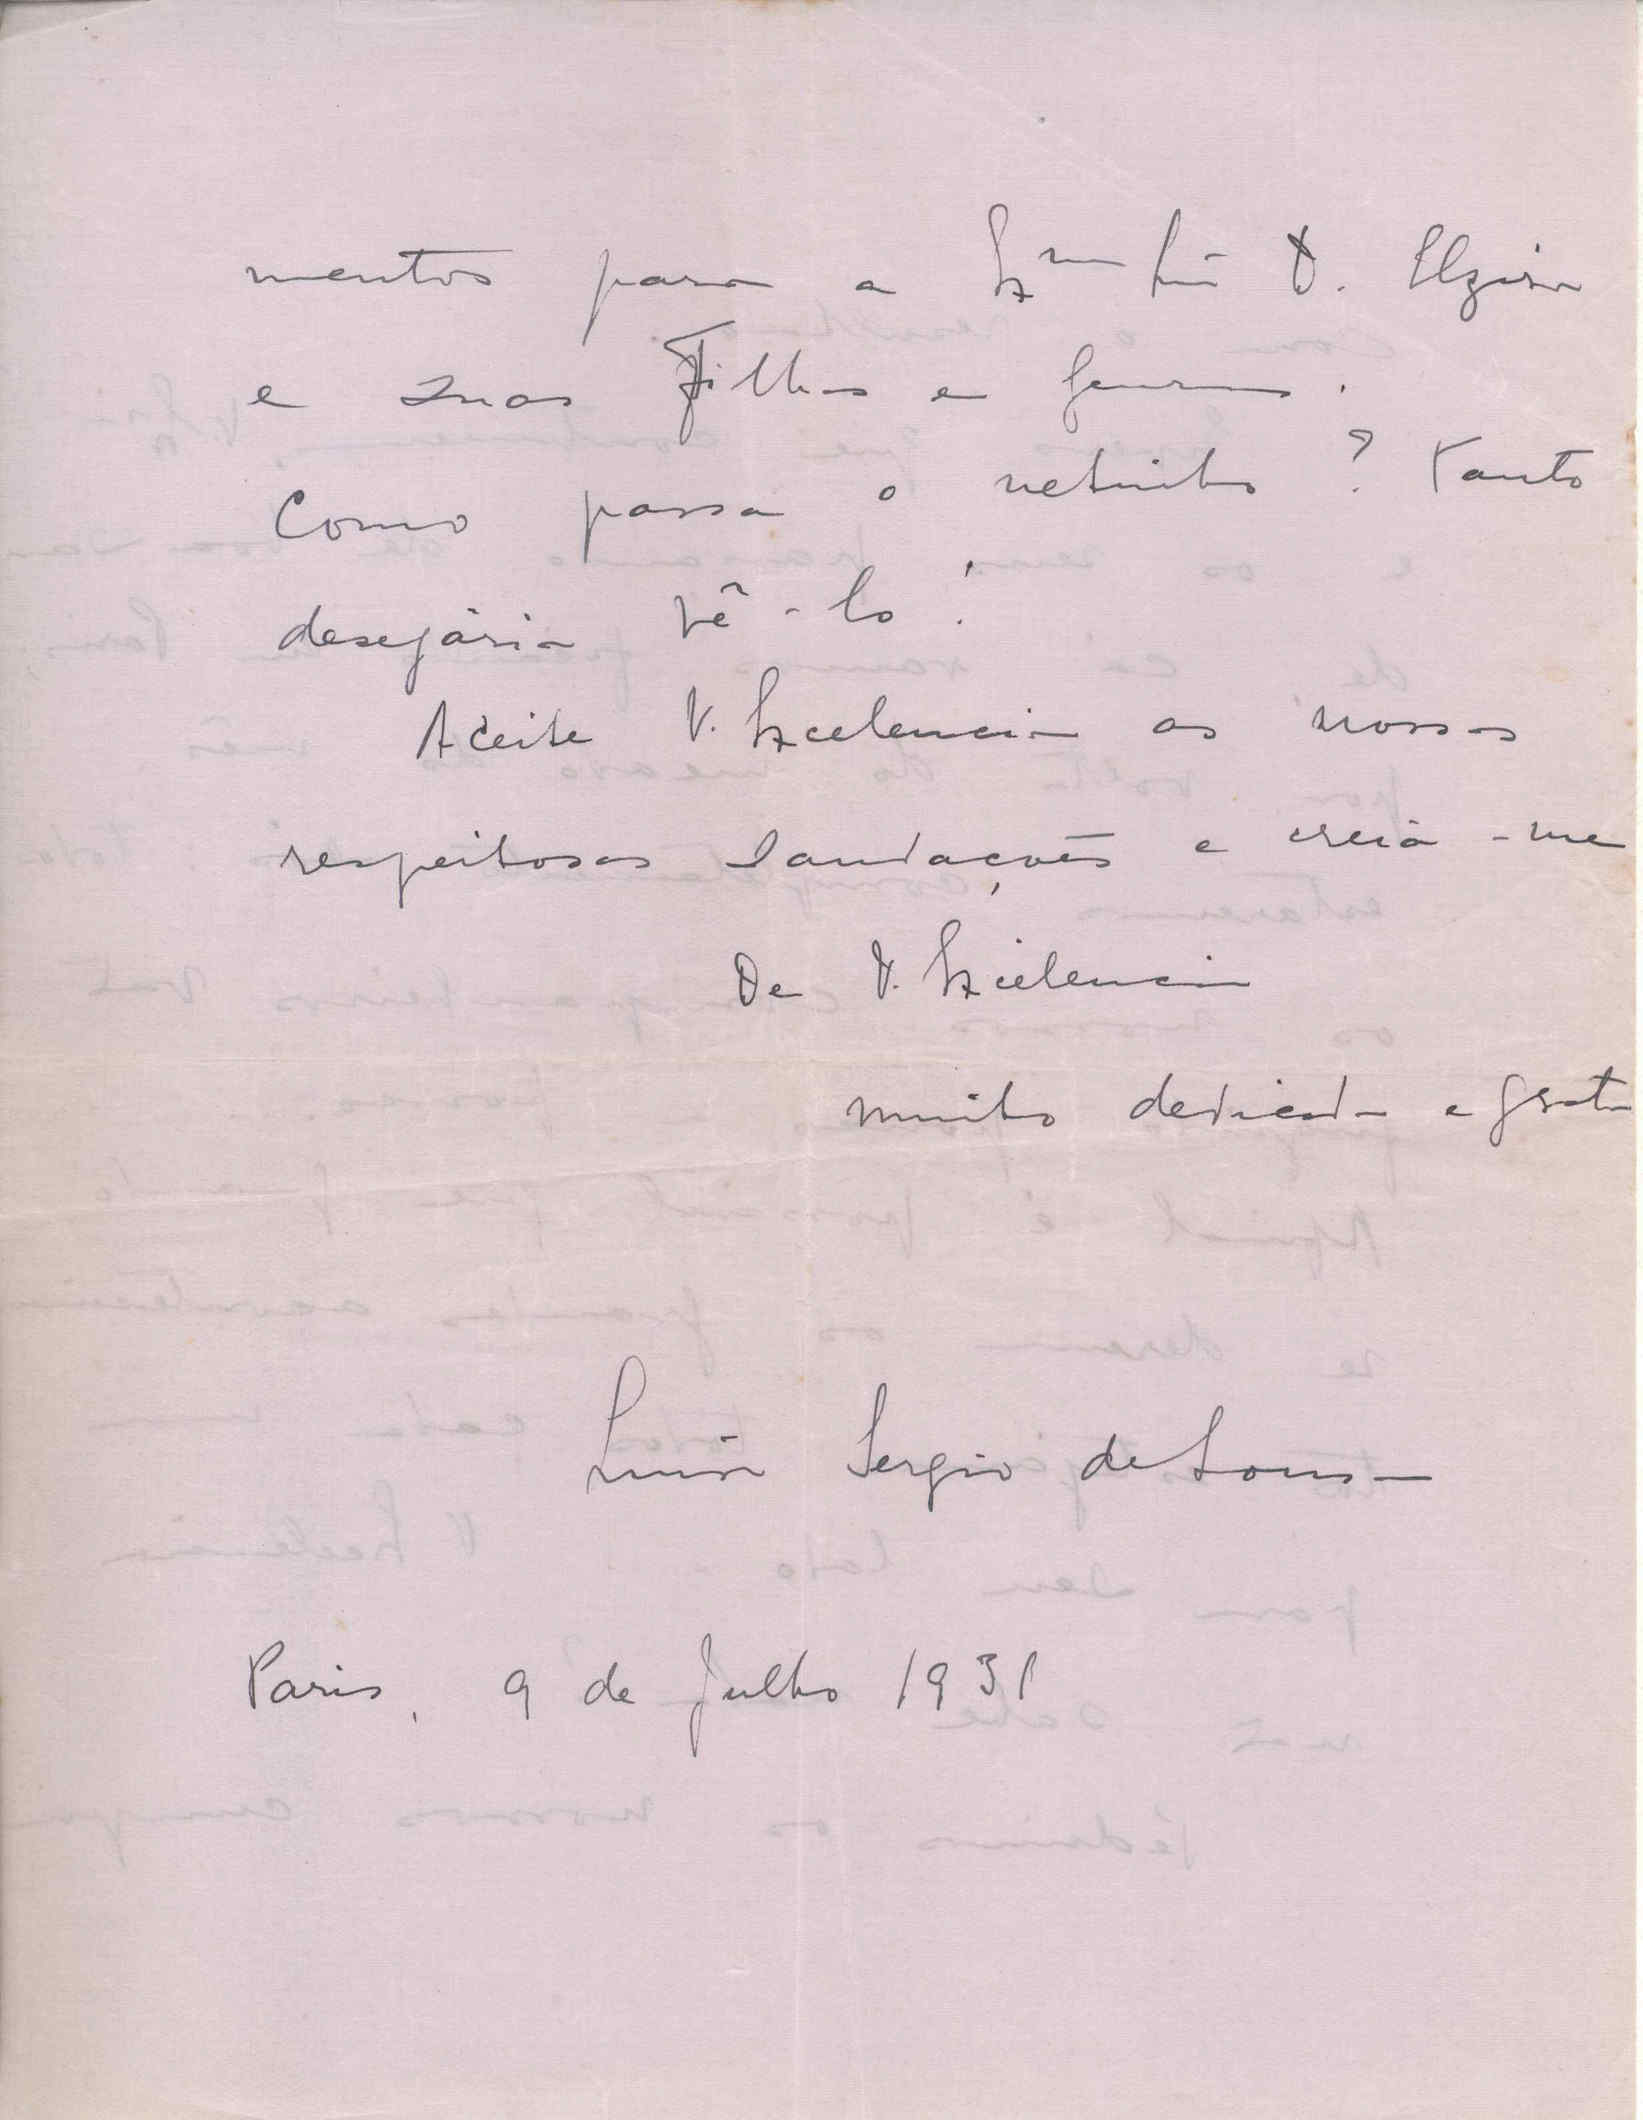 mentos para a Ex.ma Sr.ª D. Elzira
e suas Filhas e genros.
Como passa o netinho? Tanto
desejária vê-lo!
Aceite V. Excelencia as nossas
respeitosas saudações e creia-me
De V. Excelencia
muito dedicada e grata
Luisa Sergio de Sousa
Paris, 9 de Julho 1931